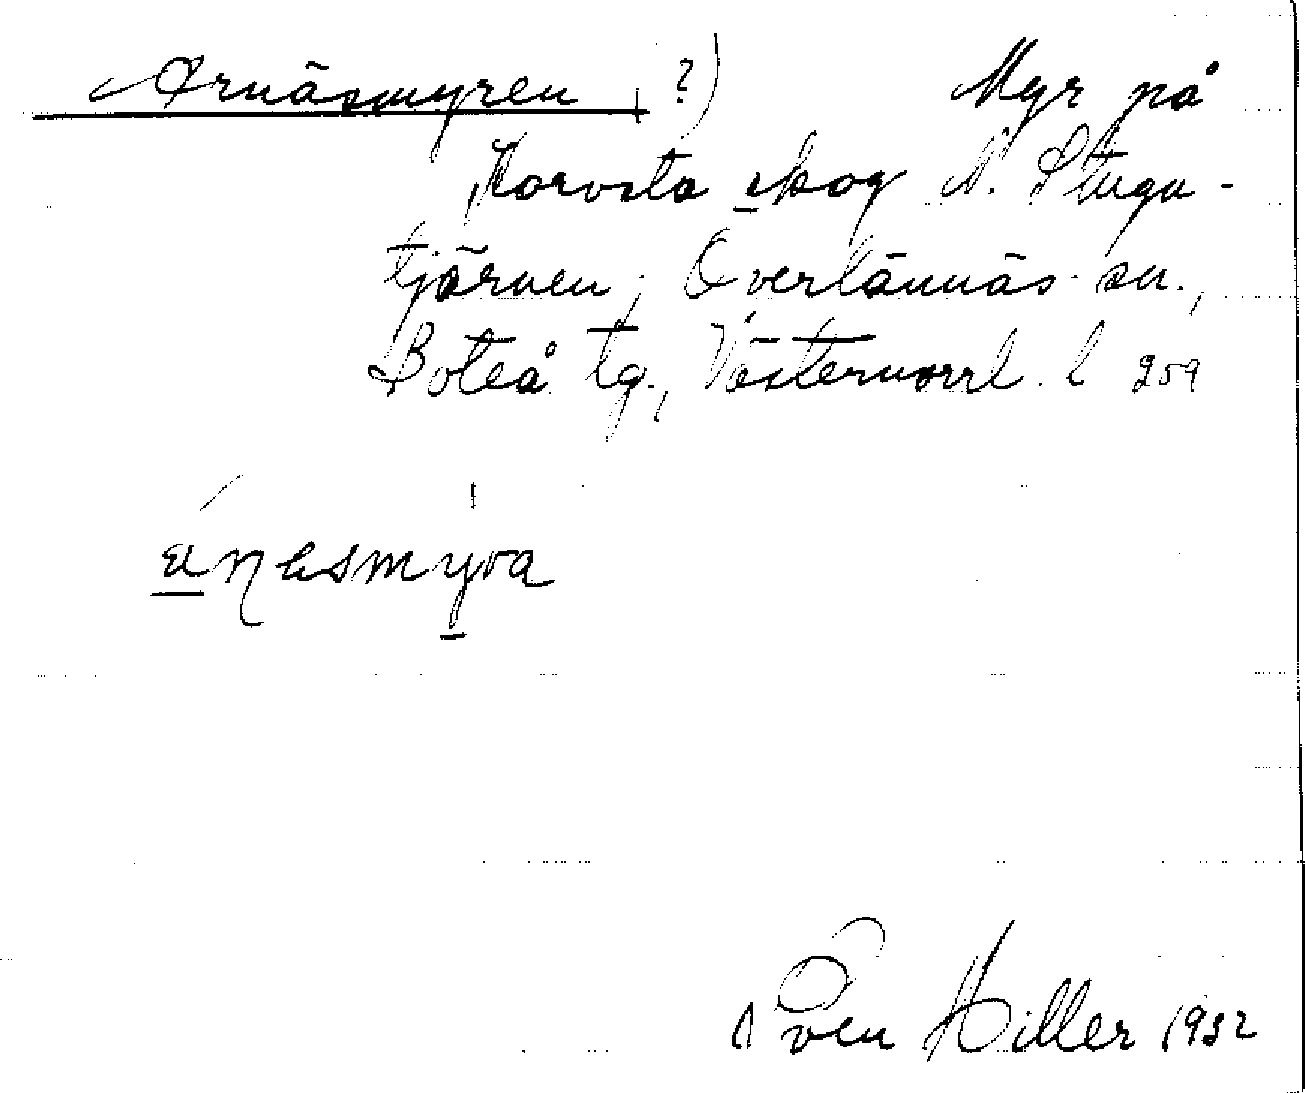 Arnäsmyren (?) Myr på
Korvsta skog N. Stugu-
tjärnen, Överlännäs sn.,
Boteå tg., Västernorrl. l 259
Sven Hiller 1932